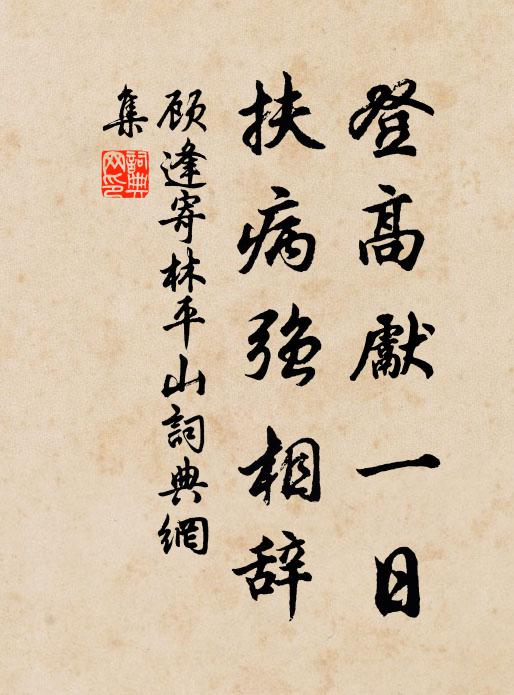 登高獻一日
扶病強相辞
顾逢寄林平山詞典網
集
詞典网印